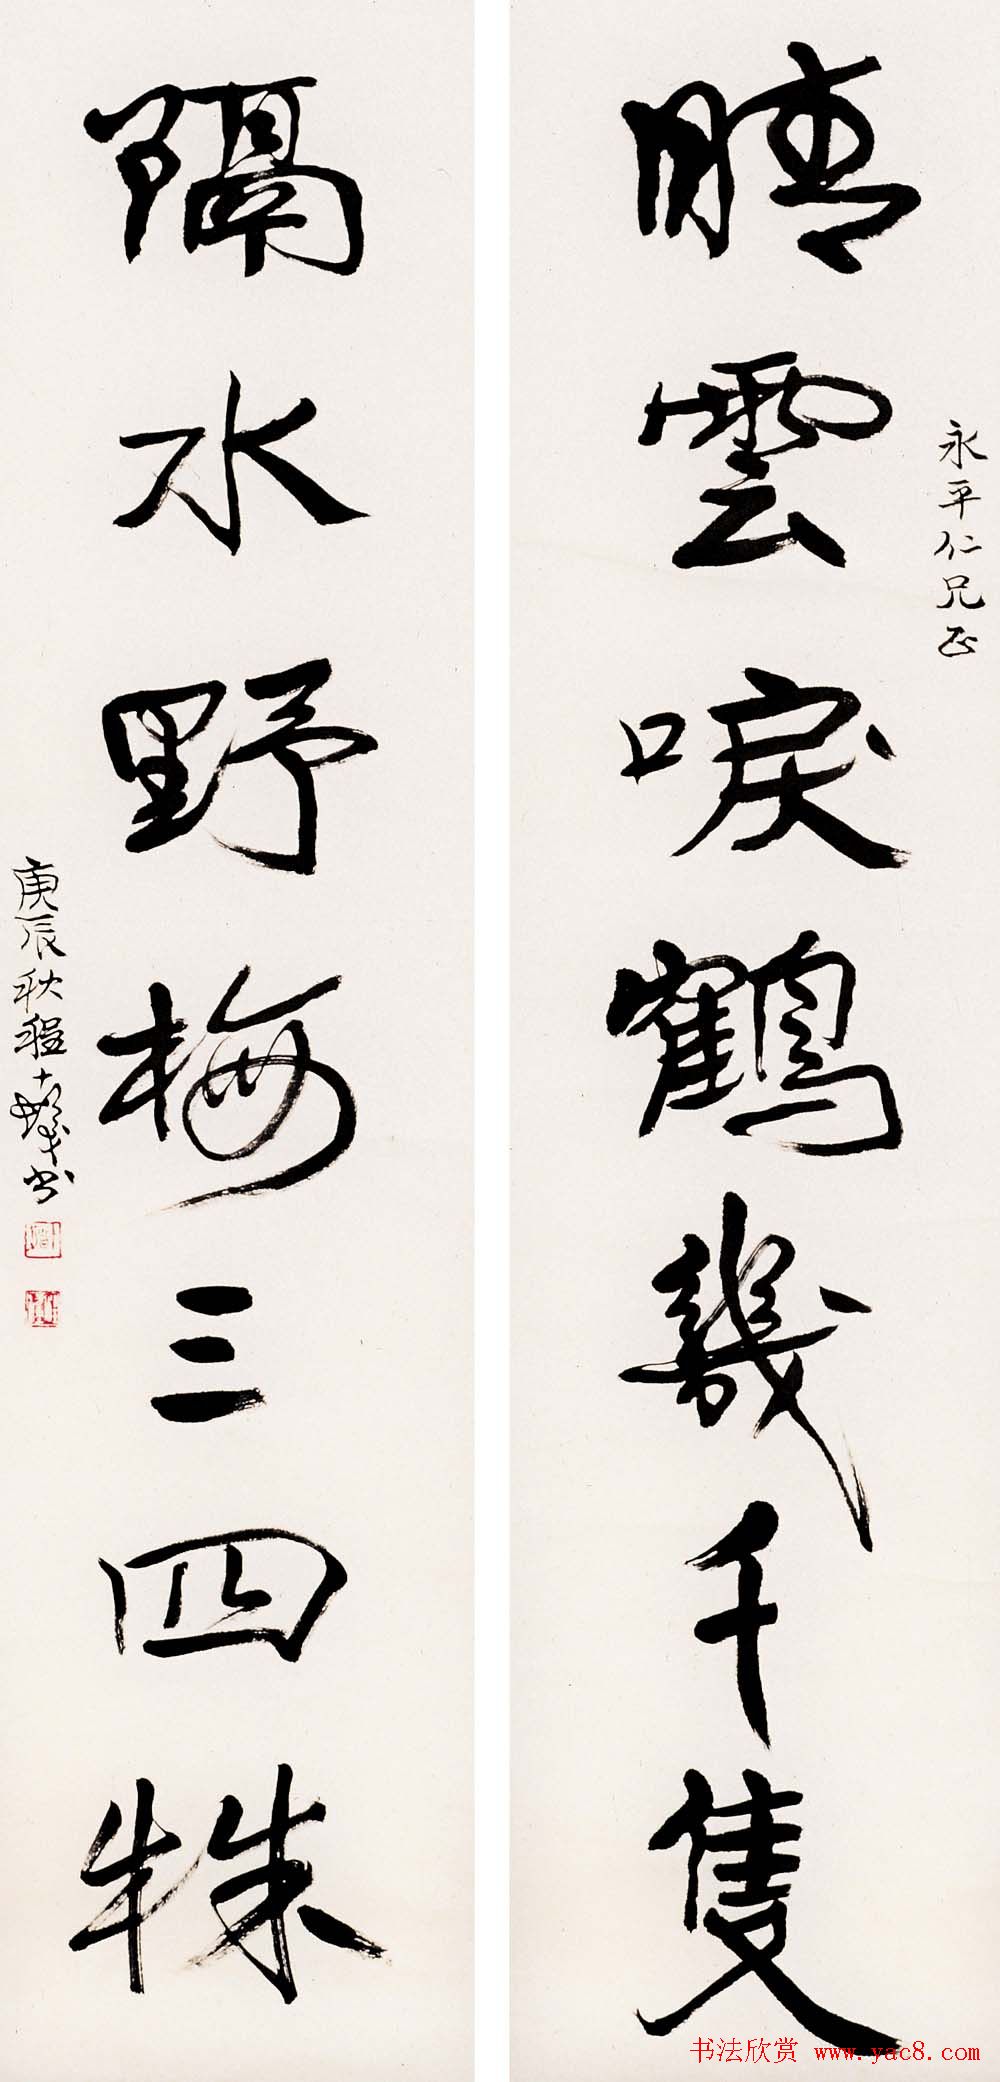 永平仁兄正
晴雲唳鶴幾千隻
隔水野梅三四株
庚辰秋程十髮書
书法欣赏 www.yac8.com